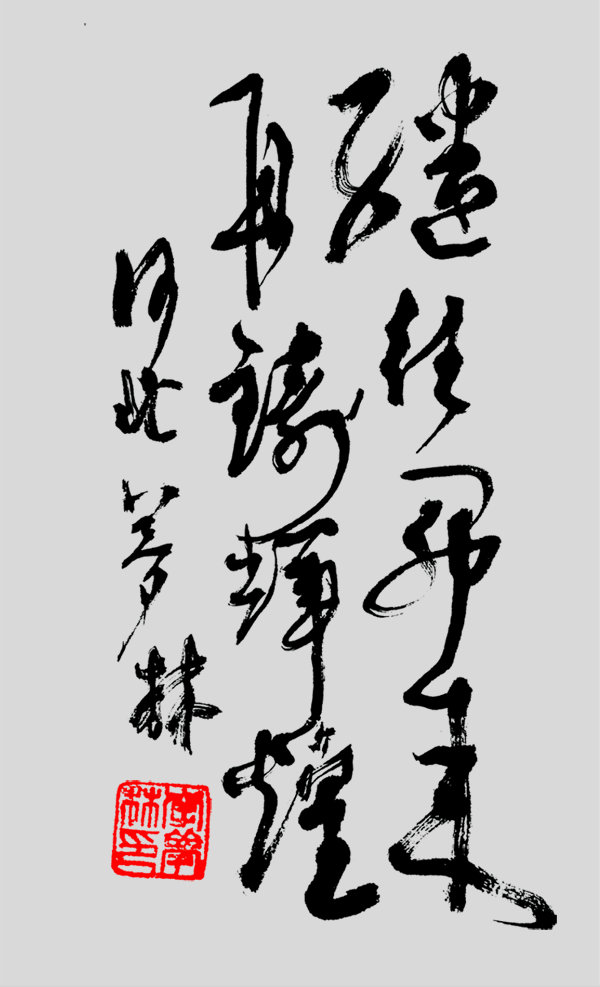 继往开来
再铸辉煌
河北
林